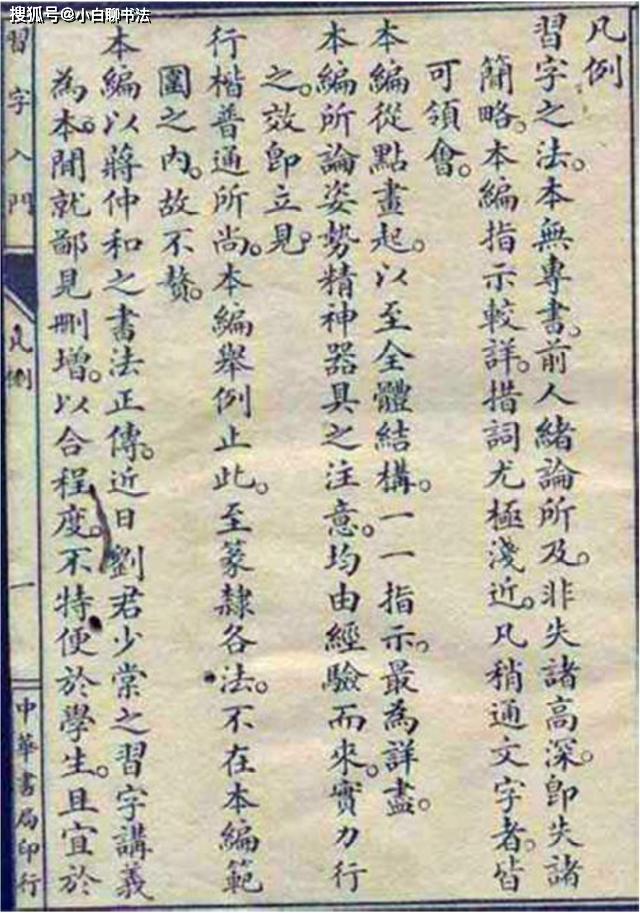 搜狐号@小白聊书法
凡例
習字之法。本無專書。前人緒論所及。非失諸高深。卽失諸
簡略。本編指示較詳。措詞尤極淺近。凡稍通文字者。皆
可領會。
本編從點畫起。以至全體結構。一一指示。最為詳盡。
本編所論姿勢精神器具之注意。均由經驗而來。實力行
之。效卽立見。
行楷普通所尚。本編舉例止此。至篆隸各法。不在本編範
圍之內。故不贅。
本編以蔣仲和之書法正傳。近日劉君少棠之習字講義
為本。間就鄙見刪增。以合程度。不特便於學生。且宜於
習字入門
凡例
一
中華書局印行